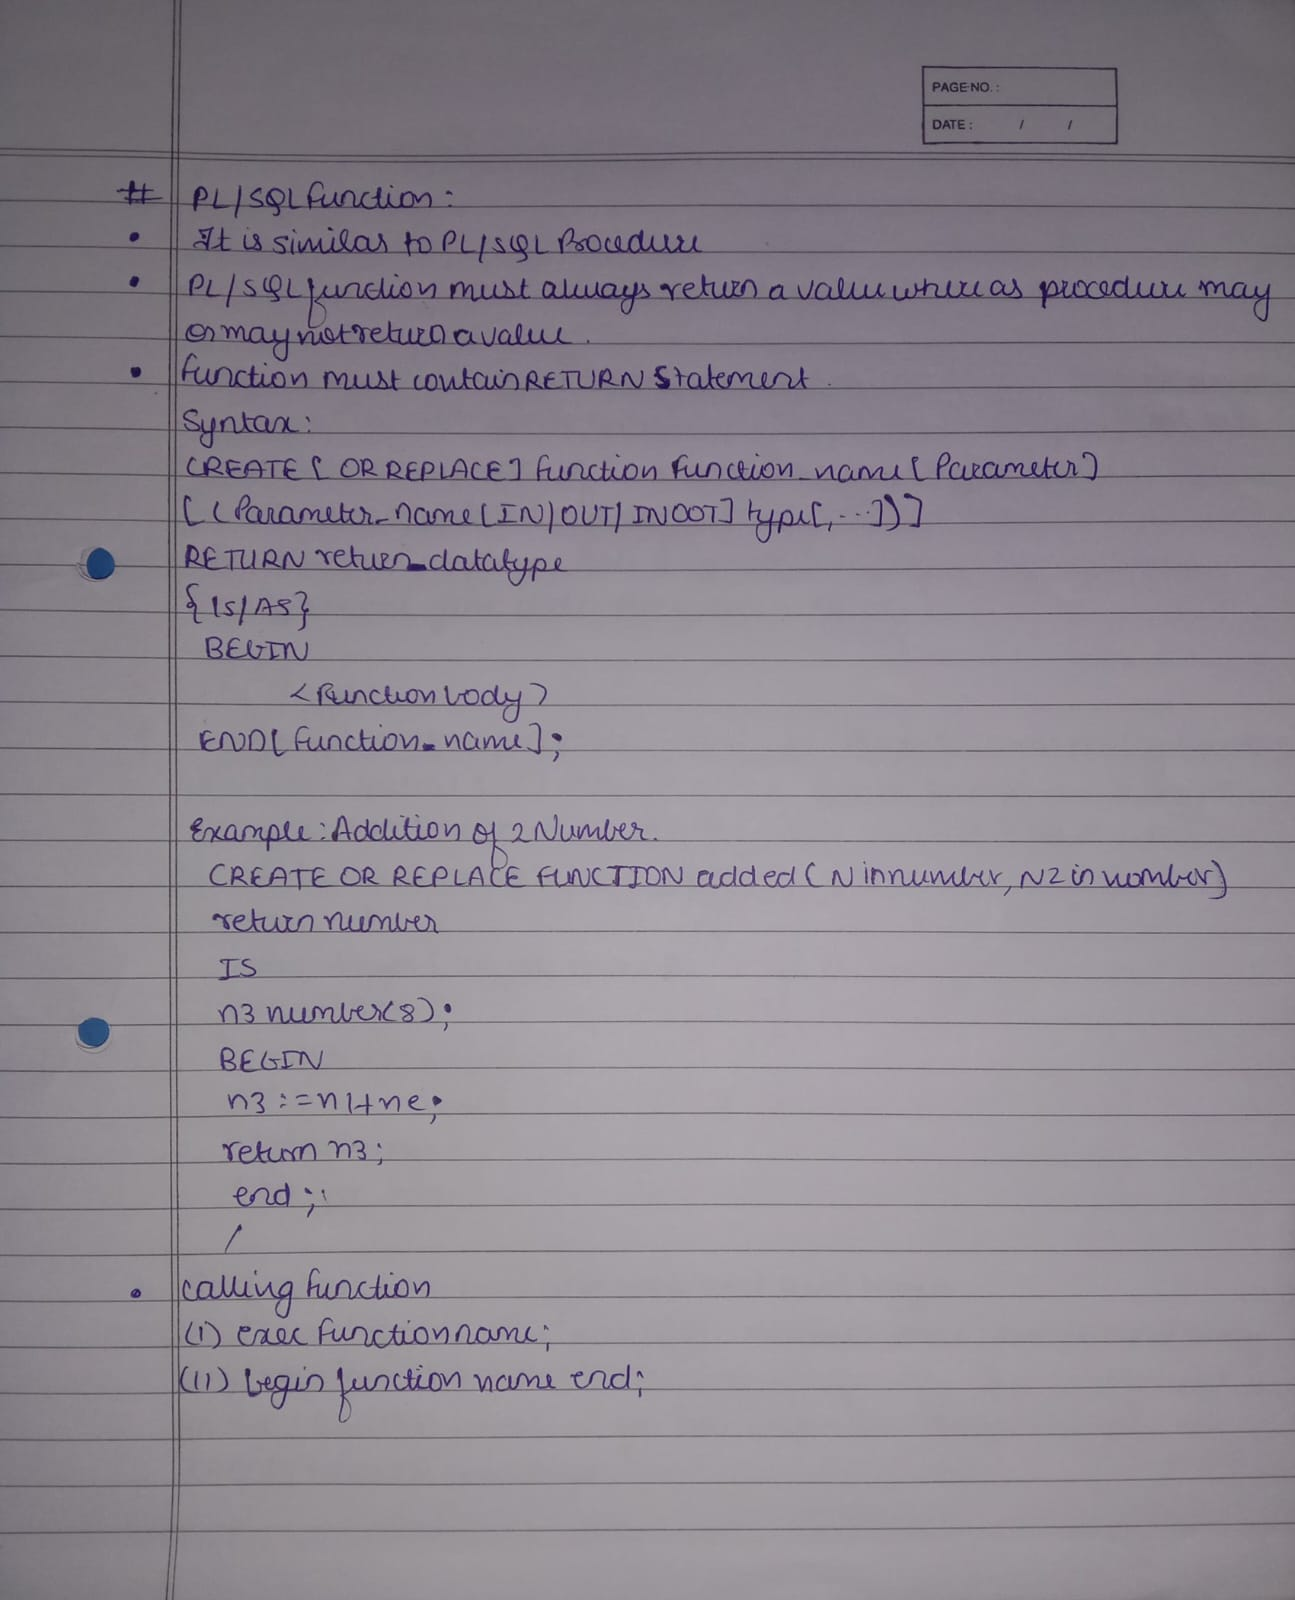 PAGE NO. :
DATE : / /
# PL/SQL function :
• It is similar to PL/SQL Procedure
• PL/SQL function must always return a value where as procedure may
or may not return a value.
• function must contain RETURN Statement.
Syntax:
CREATE [ OR REPLACE] function function_name [Parameter]
[(Parameter_name [IN/OUT/INOUT] type[,...])]
RETURN return_datatype
{IS/AS}
BEGIN
<function body>
END[function_name];
Example: Addition of 2 Number.
CREATE OR REPLACE FUNCTION added (N in number, N2 in nomber)
return number
IS
n3 number(8);
BEGIN
n3 := n1+ne;
return n3;
end ;;
/
• calling function
(i) exec function name;
(ii) begin function name end;